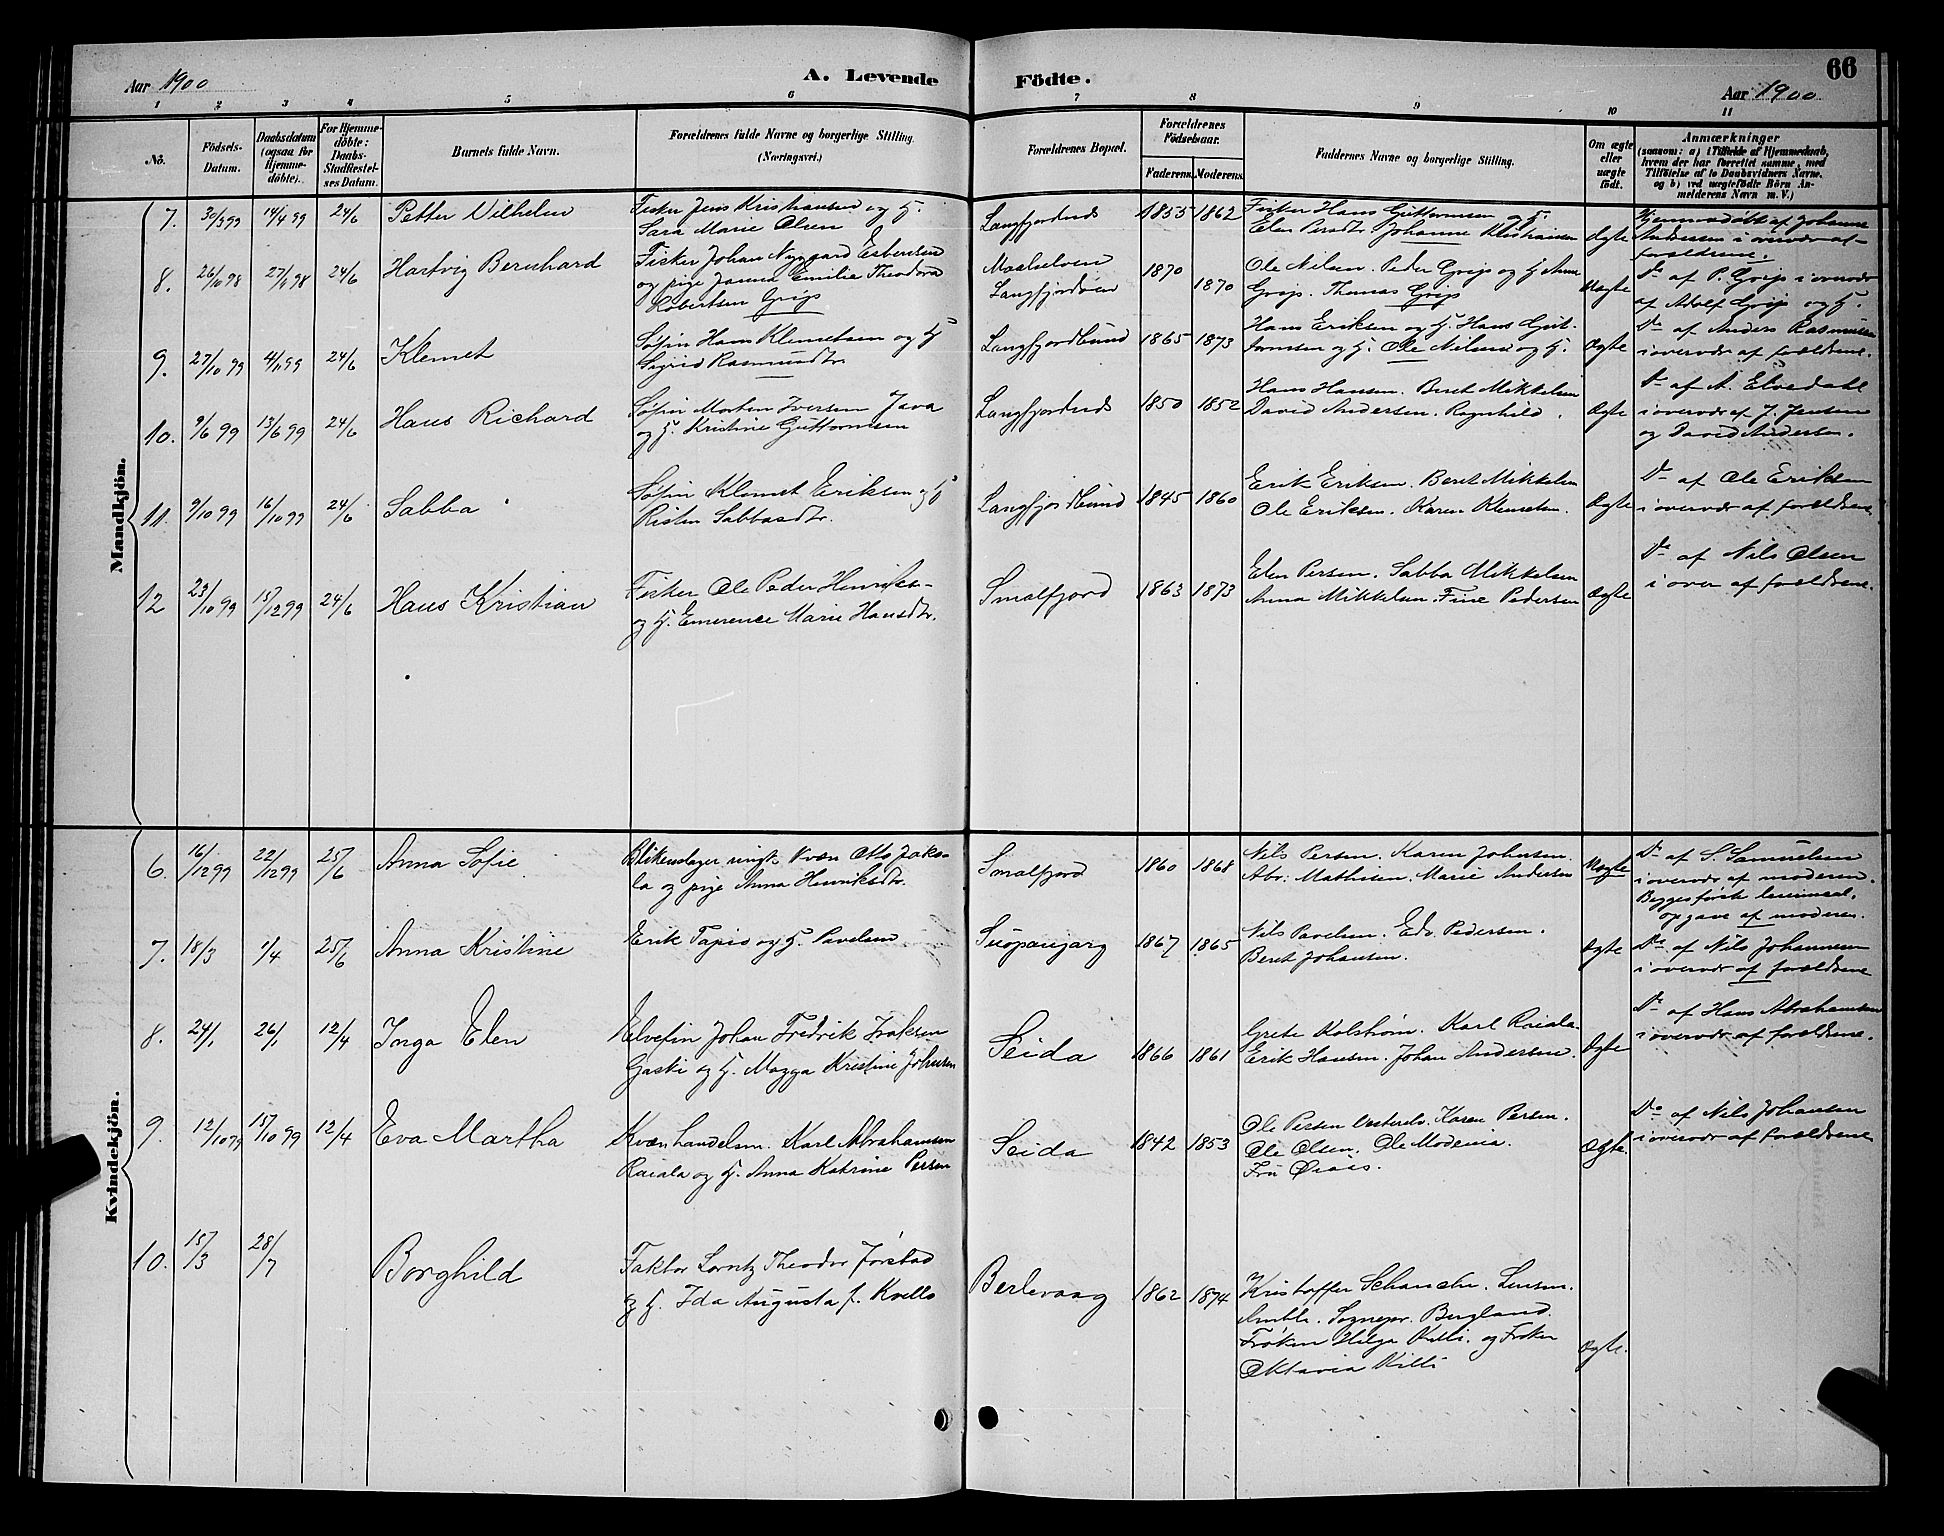 Aar 1900
A. Levende Födte.
66
Aar 1900
1 2 3 4 5 6 7 8 9 10 11
No.
Födsels-
Datum.
Daabsdatum
(ogsaa for
Hjemme-
döbte).
For Hjemme-
döbte:
Daabs-
Stadfæstel-
ses Datum.
Barnets fulde Navn.
Forældrenes fulde Navne og borgerlige Stilling.
(Næringsvei.)
Forældrenes Bopæl.
Forældrenes
Födselsaar.
Faderens. Moderens.
Faddernes Navne og borgerlige Stilling.
Om ægte
eller
uægte
födt.
Anmærkninger
(saasom: a) i Tilfælde af Hjemmedaab,
hvem der har forrettet samme, med
Tilföielse af to Daabsvidners Navne,
og b) ved uægtefödte Börn An-
melderens Navn m. V.)
Mandkjön.
7. 30/3 99 14/4 99 24/6 Petter Vilhelm
Fisker Jens Kristiansen og H.
Sara Marie Olsen
Langfjordnes 1855 1862
Fisker Hans Guttormsen og H.
Elen Persdtr Johanne Kristiansen
Ægte
Hjemmedöbt af Johanne
Andersen i overvær af
forældrene.
8. 26/10 98 27/1 98 24/6 Hartvig Bernhard
Fisker Johan Nyggard Esbensen
og pige Janna Emilie Theodora
Lobertsen Grip
Maalselven
Langfjordveien 1870 1870
Ole Nilsen. Peder Grip og H. Anne
Grip. Thomas Grip
Uægte
Do af P. Grip i overvær
af Adolf Grip og H.
9. 27/10 99 4/11 99 24/6 Klemet
Søfin Hans Klemetsen og H
Sigrid Rasmusdtr.
Langfjordbund 1865 1873
Hans Eriksen og H. Hans Gut-
tormsen og H. Ole Nilsen og H.
Ægte
Do af Anders Rasmusen
i overvær af forældrene.
10. 9/6 99 13/6 99 24/6 Hans Richard
Søfin Morten Iversen Java
og H. Kristine Guttormsen
Langfjordnes 1850 1852
Hans Hansen. Beret Mikkelsen
David Andersen. Ragnhild.
Ægte
Do af A. Elvedahl
i overvær af J. Jensen
og David Andersen.
11. 9/10 99 16/10 99 24/6 Sabba
Søfin Klemet Eriksen og H
Risten Sabbasdtr.
Langfjordbund 1845 1860
Erik Eriksen. Beret Mikkelsen
Ole Eriksen. Karen Klemetsen.
Ægte
Do af Ole Eriksen
i overvær af forældrene
12 23/10 99 15/12 99 24/6 Hans Kristian
Fisker Ole Peder Henriks-
og H. Emerence Marie Hansdtr.
Smalfjord 1863 1873
Elen Persen. Sabba Mikkelsen
Anna Mikkelsen. Fine Pedersen
Ægte
Do af Nils Olsen
i over af forældrene.
Kvindekjön.
6. 16/12 99 22/12 99 25/6 Anna Sofie
Blikenslager ungk. Kvæn Otto Jako-
la og pige Anna Henriksdtr.
Smalfjord 1860 1868
Nils Persen. Karen Johnsen.
Abr: Mathisen. Marie Andersen
Uægte
Do af S. Samuelsen
i overvær af moderen.
Begges første leiermaal.
opgave af moderen.
7. 18/3 1/4 25/6 Anna Kristine
Erik Tapio og H. Pavelsen
Suopanjarg 1867 1865
Nils Pavelsen. Edv. Pedersen.
Beret Johansen.
Ægte
Do af Nils Johannesen
i overvær af forældrene
8. 24/1 26/1 12/4 Inga Elen
Elvefin Johan Fredrik Isaksen
Gaski og H. Magga Kristine Johnsen
Seida 1866 1861
Grete Kolstrøm. Karl Raiala.
Erik Hansen. Johan Andersen.
Ægte
Do af Hans Abrahamsen
i overvær af forældrene.
9. 12/10 99 15/10 99 12/4 Eva Martha
Kvænhandelsm. Karl Abrahamsen
Raiala og H. Anna Katrine Persen
Seida 1842 1853
Ole Persen Karen Persen.
Ole Olsen. Ole
Fru
Ægte.
Do af Nils Johansen
i overvær af forældrene
10. 15/3 28/7 Borghild
Faktor Lorntz Theodor Jørstad
og H. Ida Augusta f. Kvello
Berlevaag 1862 1874
Kristoffer Schanche. Lensm.
Amble. Sognepr. Bergland.
Frøken Helga Killi. og Frøken
Oktavia Killi
Ægte.